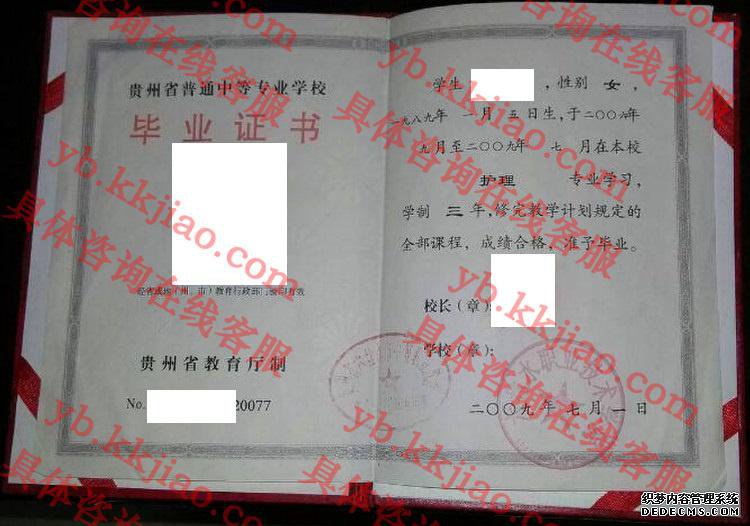 贵州省普通中等专业学校
毕业证书
经省或地(州、市)教育行政部门验印有效
贵州省教育厅制
No. 20077
学生 ,性别 女,
一九八九年 一月 五日生,于二〇〇六年
九月至二〇〇九年 七 月在本校
护理 专业学习,
学制 三 年,修完教学计划规定的
全部课程,成绩合格,准予毕业。
校长(章):
学校(章):
二〇〇九年七月一日
水职业技术
具体咨询在线客服
yb.kkjiao.com
具体咨询在线客服
yb.kkjiao.com
具体咨询在线客服
yb.kkjiao.com
具体咨询在线客服
织梦内容管理系统
DEDECMS.COM